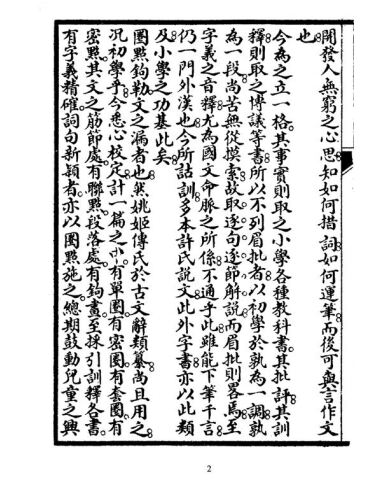 開發人無窮之心思知如何措詞如何運筆而後可與言作文
也
今為之立一格其事實則取之小學各種教科書其批評其訓
釋則取之博議等書所以不列眉批者以初學於孰為一調孰
為一段尚苦無從摸索故取逐句逐節解說而眉批則畧焉至
字義之音釋尤為國文命脈之所係不通乎此雖能下筆千言
仍一門外漢也今所詁訓多本許氏說文此外字書亦以此類
及小學之功基此矣
圈點鉤勒文之漏者也然姚姬傳氏於古文辭類纂尚且用之
况初學乎今悉心校定計一篇之中有單圈有密圈有套圈有
密點其文之筋節處有聯點段落處有鉤畫至採引訓釋各書
有字義精確詞句新頴者亦以圈點施之總期鼓動兒童之興
2